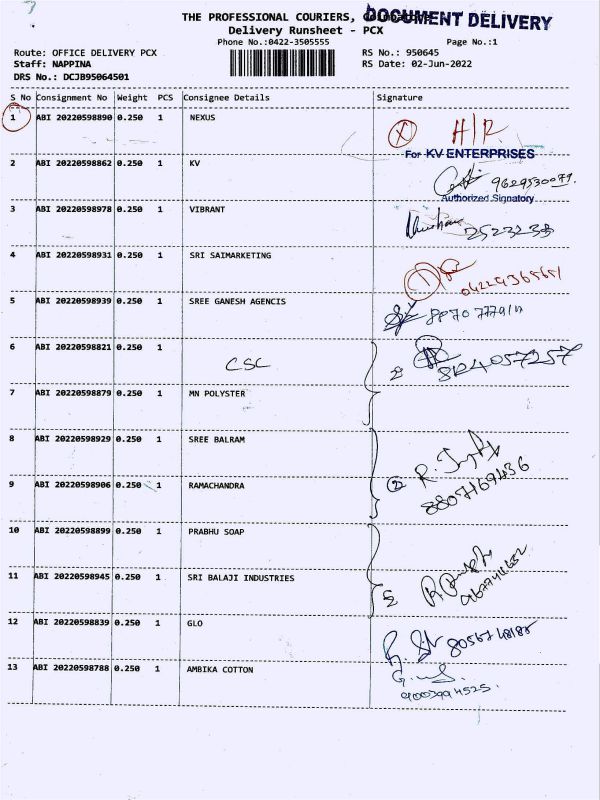 THE PROFESSIONAL COURIERS,
DOCUMENT DELIVERY
Delivery Runsheet - PCX
Phone No.:0422-3505555 Page No.:1
Route: OFFICE DELIVERY PCX RS No.: 950645
Staff: NAPPINA RS Date: 02-Jun-2022
DRS No.: DCJB95064501
S No Consignment No Weight PCS Consignee Details Signature
1 ABI 20220598890 0.250 1 NEXUS
H/R
For KV ENTERPRISES
2 ABI 20220598862 0.250 1 KV
9629530079.
Authorized Signatory
3 ABI 20220598978 0.250 1 VIBRANT
2523233
4 ABI 20220598931 0.250 1 SRI SAIMARKETING
1
5 ABI 20220598939 0.250 1 SREE GANESH AGENCIS
6 ABI 20220598821 0.250 1
CSC
8124057257
7 ABI 20220598879 0.250 1 MN POLYSTER
8 ABI 20220598929 0.250 1 SREE BALRAM
9 ABI 20220598906 0.250 1 RAMACHANDRA
2
8807169436
10 ABI 20220598899 0.250 1 PRABHU SOAP
11 ABI 20220598945 0.250 1 SRI BALAJI INDUSTRIES
12 ABI 20220598839 0.250 1 GLO
8056748188
13 ABI 20220598788 0.250 1 AMBIKA COTTON
9003994525.